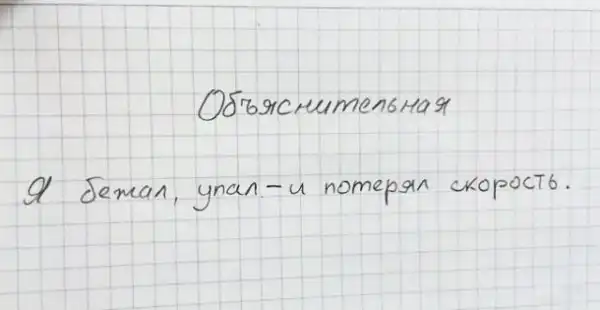 Объяснительная
Я бежал, упал - и потерял скорость.